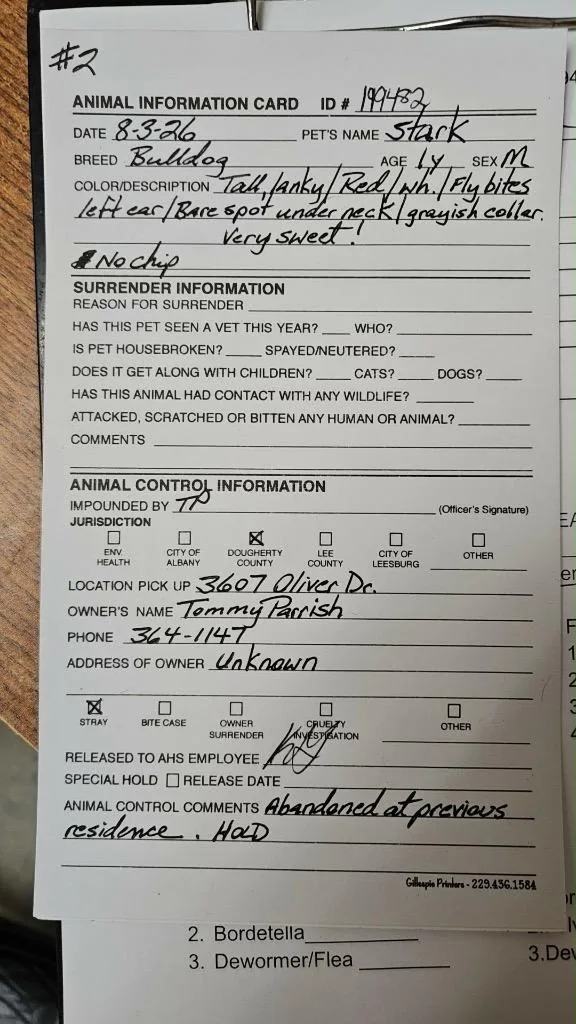 #2
ANIMAL INFORMATION CARD ID # 199482
DATE 8-3-26 PET'S NAME Stark
BREED Bulldog AGE 1y SEX M
COLOR/DESCRIPTION Tall, lanky/Red/wh./Fly bites
left ear/Bare spot under neck/grayish collar.
Very sweet!
No chip
SURRENDER INFORMATION
REASON FOR SURRENDER
HAS THIS PET SEEN A VET THIS YEAR? WHO?
IS PET HOUSEBROKEN? SPAYED/NEUTERED?
DOES IT GET ALONG WITH CHILDREN? CATS? DOGS?
HAS THIS ANIMAL HAD CONTACT WITH ANY WILDLIFE?
ATTACKED, SCRATCHED OR BITTEN ANY HUMAN OR ANIMAL?
COMMENTS
ANIMAL CONTROL INFORMATION
IMPOUNDED BY TP (Officer's Signature)
JURISDICTION
ENV. HEALTH CITY OF ALBANY DOUGHERTY COUNTY LEE COUNTY CITY OF LEESBURG OTHER
LOCATION PICK UP 3607 Oliver Dr.
OWNER'S NAME Tommy Parrish
PHONE 364-1147
ADDRESS OF OWNER Unknown
STRAY BITE CASE OWNER SURRENDER CRUELTY INVESTIGATION OTHER
RELEASED TO AHS EMPLOYEE
SPECIAL HOLD RELEASE DATE
ANIMAL CONTROL COMMENTS Abandoned at previous
residence. HOLD
Gillespie Printers - 229.436.1584
2. Bordetella
3. Dewormer/Flea 3.Dew